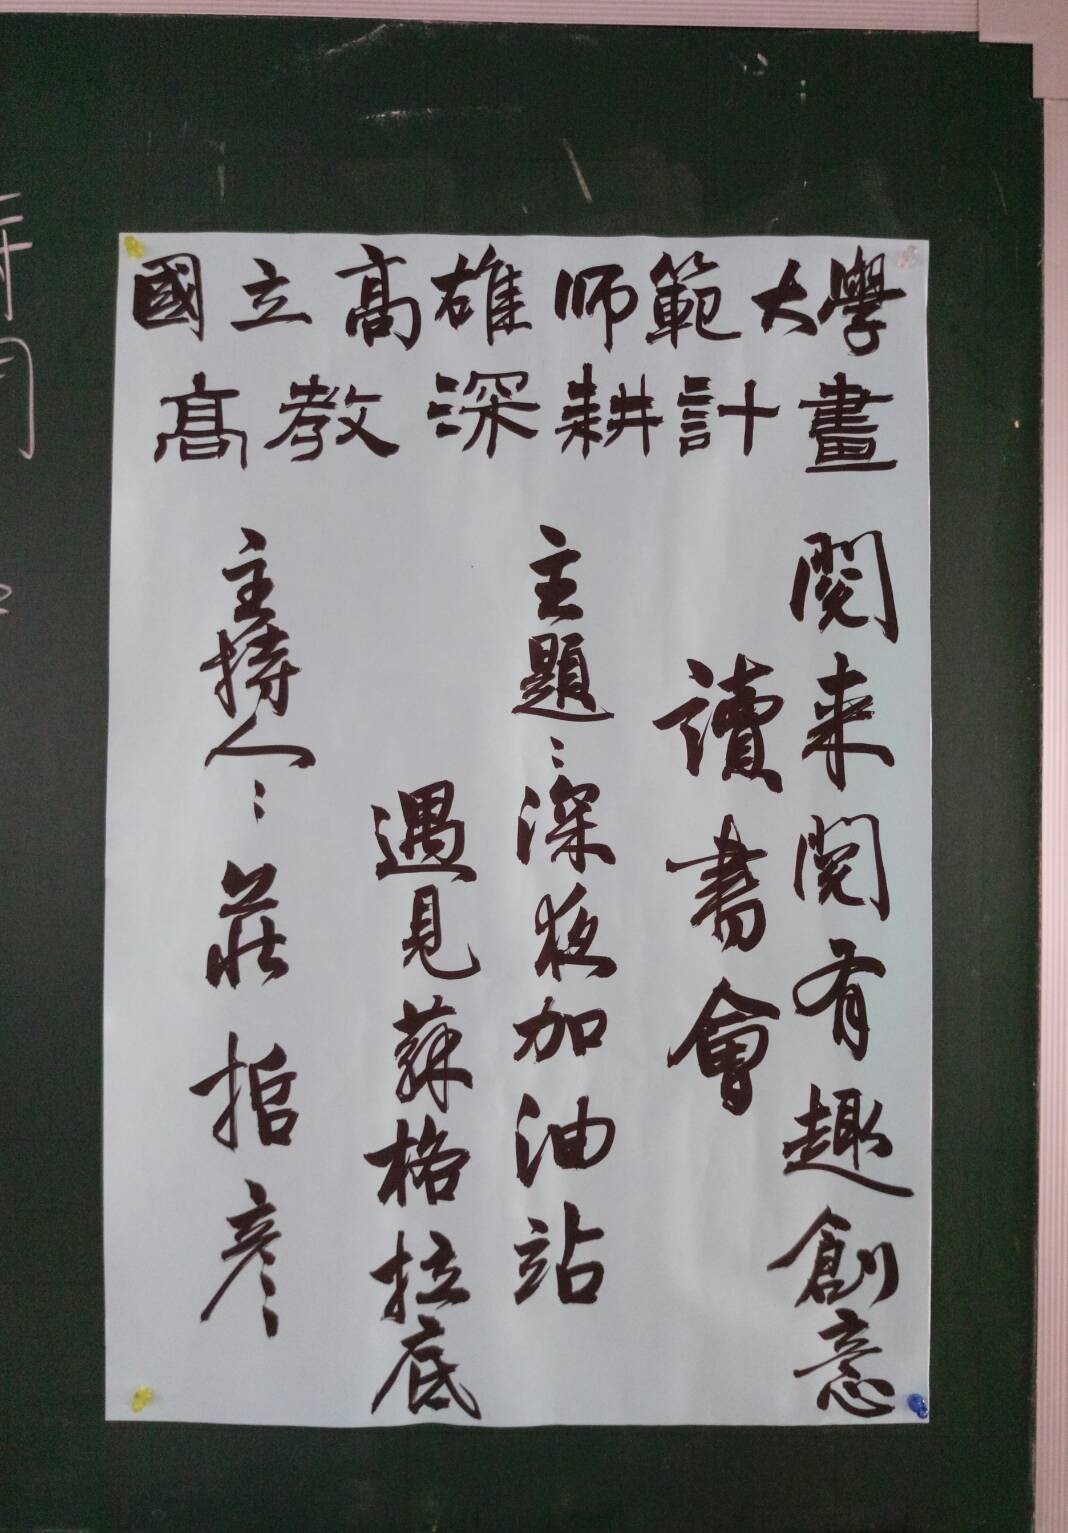 國立高雄师範大學
高教深耕計畫
閱来閱有趣創意
讀書會
主題：深夜加油站
遇見蘇格拉底
主持人：莊㨗彥